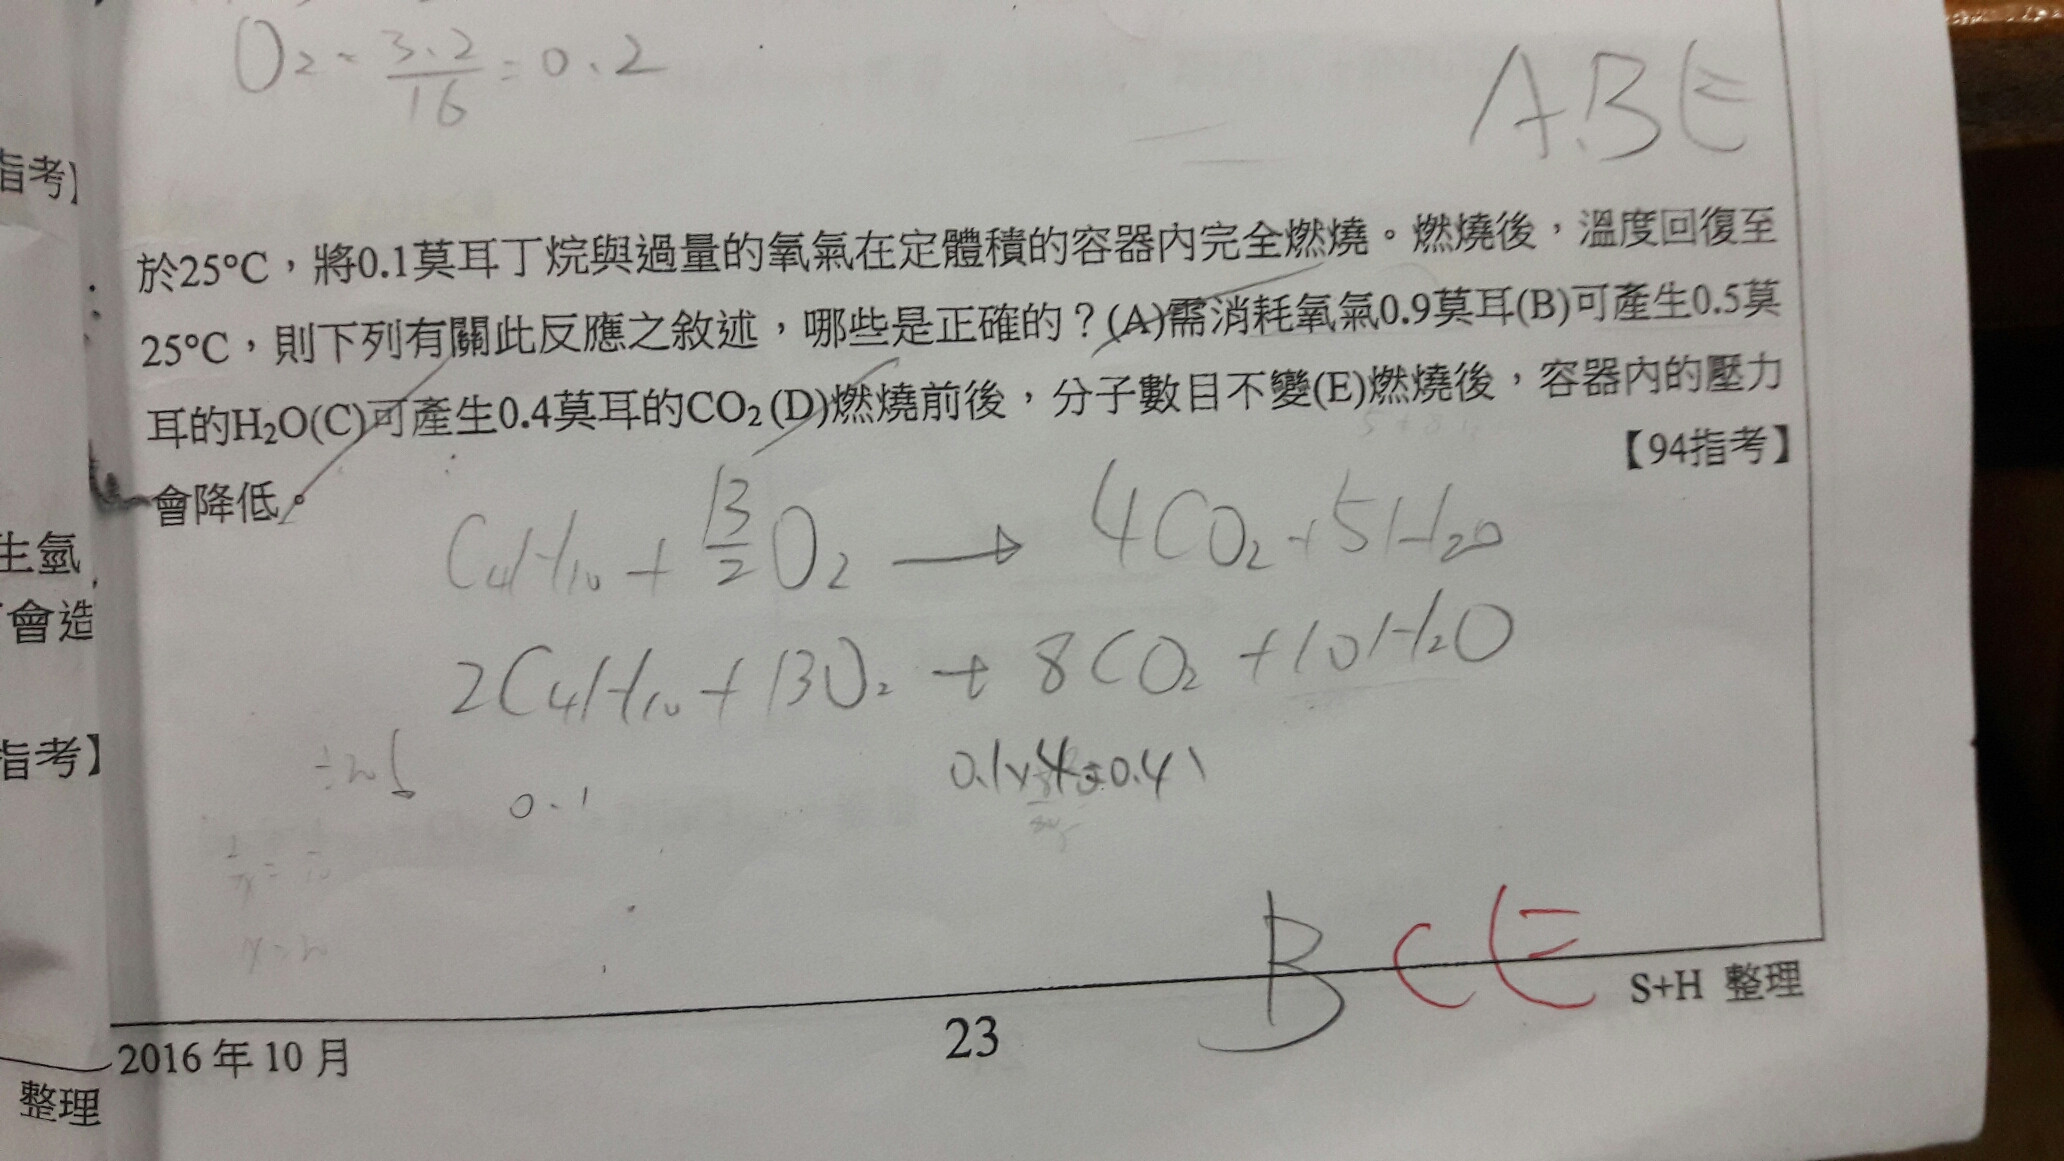 O2 - 3.2/16 = 0.2
A.BE
指考】
於25°C，將0.1莫耳丁烷與過量的氧氣在定體積的容器內完全燃燒。燃燒後，溫度回復至
25°C，則下列有關此反應之敘述，哪些是正確的？(A)需消耗氧氣0.9莫耳(B)可產生0.5莫
耳的H2O(C)可產生0.4莫耳的CO2(D)燃燒前後，分子數目不變(E)燃燒後，容器內的壓力
會降低。
【94指考】
C4H10 + 13/2 O2 → 4CO2 + 5H2O
生氫
會造
2C4H10 + 13O2 → 8CO2 + 10H2O
指考】
0.1
0.1x4=0.4
B C E
S+H 整理
23
2016 年 10 月
整理